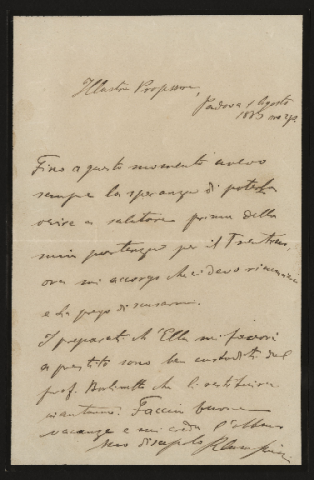 Illustre Professore,
Padova 1 Agosto
1883
Fino a questo momento avevo
sempre la speranza di poterla
venire a salutare prima della
mia partenza per il Trentino,
ora mi accorgo che devo rinunciarvi
e La prego di scusarmi.
I preparati ch'Ella mi favorì
a prestito sono ben custoditi dal
prof. che li restituirà
quest'autunno. Faccia buone
vacanze e mi creda l'obbmo
suo discepolo